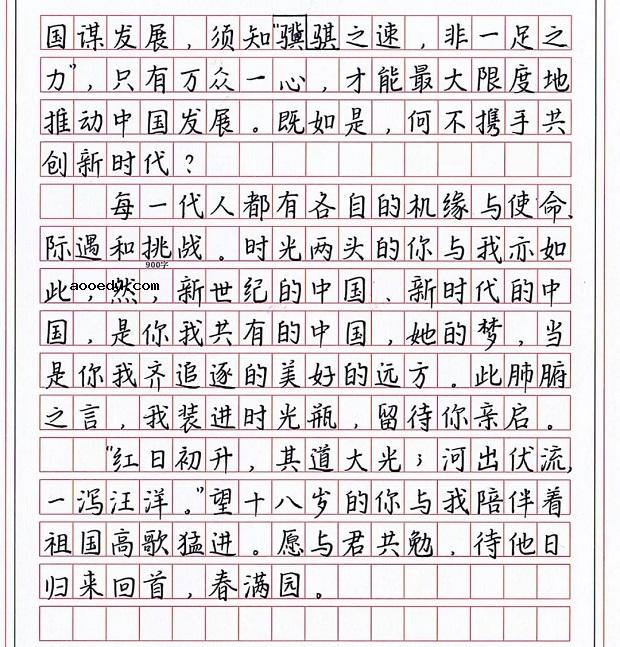 国谋发展，须知“骥骐之速，非一足之
力”，只有万众一心，才能最大限度地
推动中国发展。既如是，何不携手共
创新时代？
每一代人都有各自的机缘与使命、
际遇和挑战。时光两头的你与我亦如
900字
此，然，新世纪的中国、新时代的中
aooedu.com
国，是你我共有的中国，她的梦，当
是你我齐追逐的美好的远方。此肺腑
之言，我装进时光瓶，留待你亲启。
“红日初升，其道大光；河出伏流，
一泻汪洋。”望十八岁的你与我陪伴着
祖国高歌猛进。愿与君共勉，待他日
归来回首，春满园。